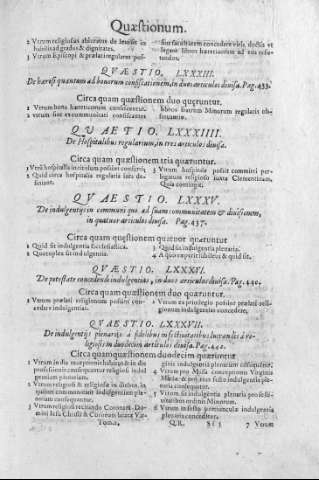 Quæstionum.
2 Vtrum religiosus
habilis ad gradus & dignitates.
3 Vtrum Episcopi & prælati regulares pos-
sint facultatem concedere viris doctis et
legere libros hæreticorum ad eos
tandos.
QVÆSTIO. LXXXIII.
De hæresi quantum ad bonorum confiscationem, in duos articulos diuisa. Pag. 433.
Circa quam quæstionem duo quęruntur.
1 Vtrum bona hæreticorum confiscentur.
2 Vtrum sint excommunicati confiscantes
bona fratrum Minorum regularis obseruantiæ.
QVAETIO. LXXXIIII.
De Hospitalibus regularium, in tres articulos diuisa.
Circa quam quæstionem tria quæruntur.
1 Vtrū hospitalia institutum possint
2 Quid circa hospitalia regularia sit
3 Vtrum hospitale possit committi per
legatum religioso iuxta Clementinam,
Quia contingit.
QVAESTIO. LXXXV.
De indulgentijs in communi quo ad suam communitatem & diuisionem,
in quatuor articulos diuisa. Pag. 437.
Circa quam quęstionem quatuor quæruntur
1 Quid sit indulgentia Ecclesiastica.
2 Quotuplex sit indulgentia.
3 Quid sit indulgentia plenaria.
4 A quo reperit iubileus & quid sit.
QVÆSTIO. LXXXVI.
De potestate concedendi indulgentias, in duos articulos diuisa. Pag. 440.
Circa quam quæstionem duo quæruntur.
1 Vtrum prælati religionum possint con-
cedere indulgentias.
2 Vtrum ex priuilegio possint prælati reli-
gionum indulgentias concedere.
QVÆSTIO. LXXXVII.
De indulgentijs plenarijs à fidelibus in
ligiosis in duodecim articulos diuisa. Pag. 442.
Circa quam quæstionem duodecim quæruntur
1 Vtrum in die susceptionis habitus & in die
professionis consequantur religiosi indul
gentiam plenariam.
2 Vtrum religiosi & religiosæ in diebus, in
quibus communicant indulgentiam plena-
riam consequantur.
3 Vtrum religiosi recitando Coronam Do-
mini Iesu Christi & Coronam beatæ Vir-
ginis indulgentiam plenariam consequantur.
4 Vtrum pro Missa conceptionis Virginis
Mariæ & pro eius festo indulgentia ple-
naria consequantur.
5 Vtrum sit indulgentia plenaria pro
ordinis Minorum.
6 Vtrum in festo portiuncula indulgentia
plenaria consequatur.
Tom. Q.R. S s 3 7 Vtrum